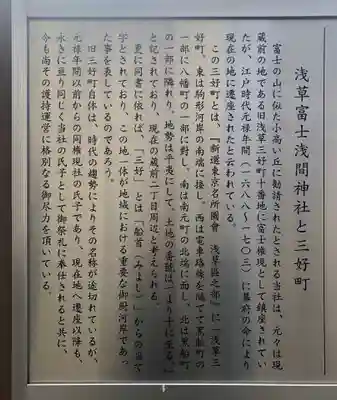 浅草富士浅間神社と三好町
富士の山に似た小高い丘に勧請されたとされる当社は、元々は現
蔵前の地である旧浅草三好町十番地に富士権現として鎮座されてい
たが、江戸時代元禄年間(一六八八~一七〇三)に幕府の命により
現在の地に遷座されたと云われている。
この三好町とは、「新選東京名所圖會 浅草區之部」に「浅草三
好町。東は駒形河岸の南端に接し。西は電車路線を隔てて黒船町の
一部に八幡町の一部に對し、南は南元町の北端に面し、北は黒船町
の一部に隣れり。地勢は平夷にして、土地の番號は一より十に至る。」
と記されており、現在の蔵前二丁目周辺と考えられる。
更に同書に依れば、「三好」とは「船首(みよし)」からの当て
字とされており、この地一体が地域における重要な御厩河岸であっ
た事を表しているのであろう。
旧三好町自体は、時代の趨勢によりその名称が途切れているが、
元禄年間以前からの同権現社の氏子であり、現在地へ遷座以降も、
永きに亘り同じく当社の氏子として御祭礼に奉仕されると共に、
今も尚その護持運営に格別なる御尽力を頂いている。